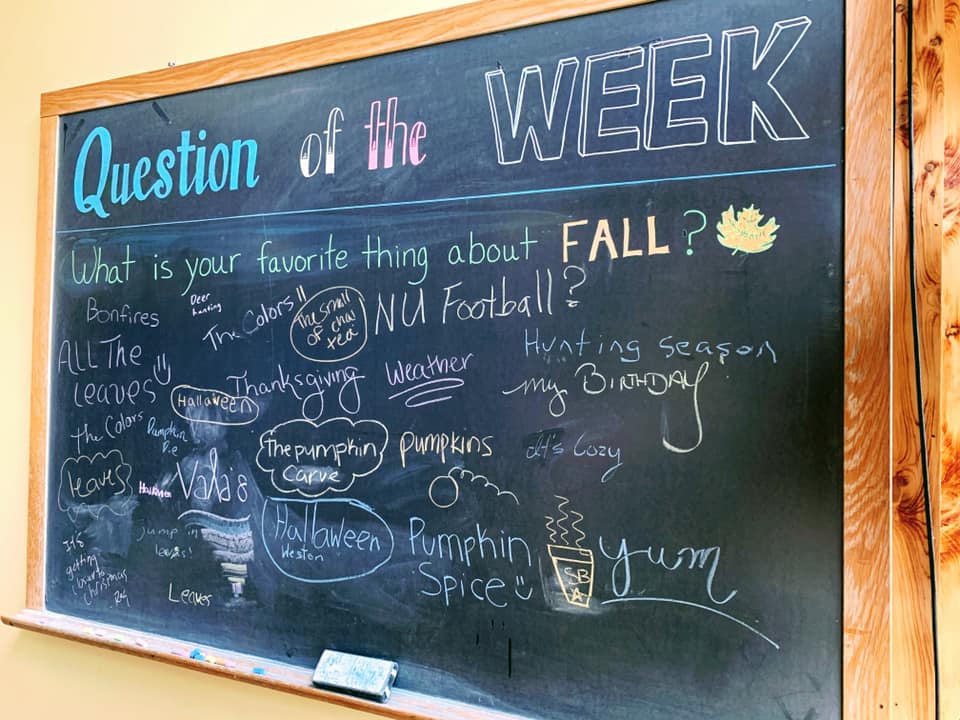 Question of the WEEK
What is your favorite thing about FALL?
Bonfires
Deer
hunting
The Colors
The small
of chai
tea
NU Football?
ALL The
Leaves
Halloween
Thanksgiving
Weather
Hunting season
my BIRTHDAY
the Colors
Pumpkin
Pie
The pumpkin
Carve
Pumpkins
It's Cozy
leaves
Halloween
Vala's
Hallaween
Weston
Pumpkin
Spice
SB
A
yum
It's
getting
closer to
Christmas
jump in
leaves!
Leaves